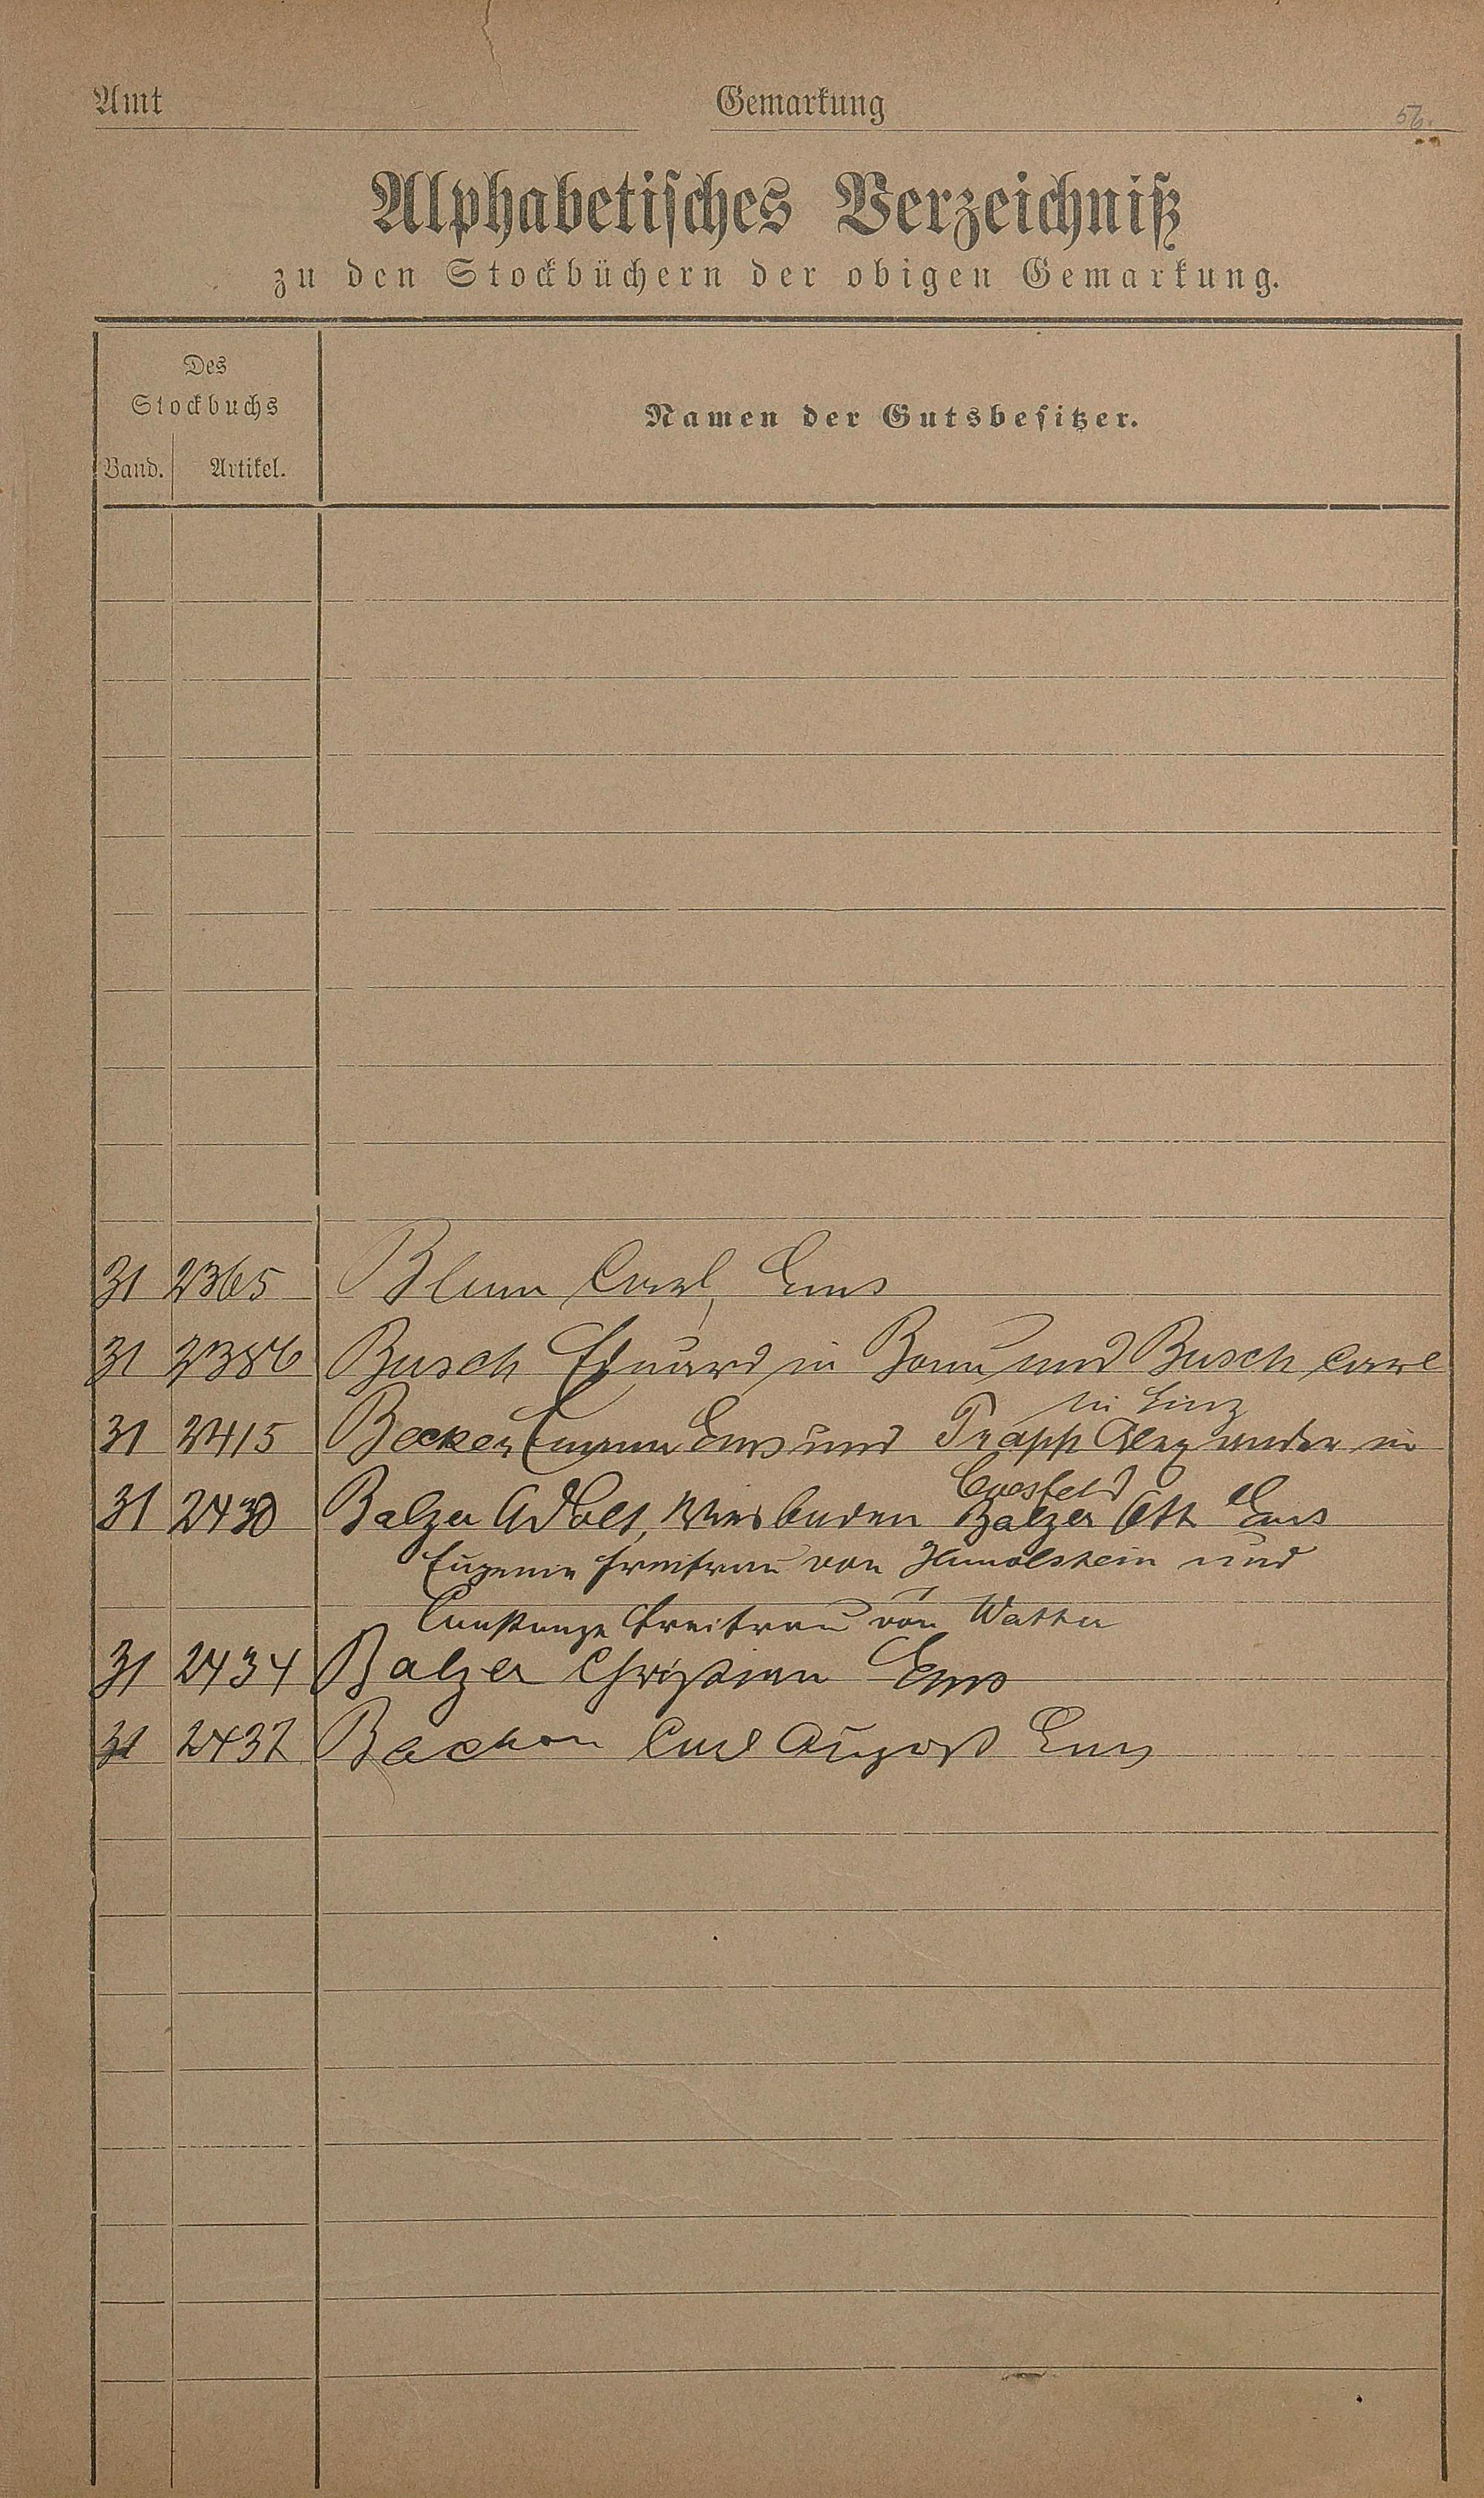 Amt Gemarkung 56.
Alphabetisches Verzeichniß
zu den Stockbüchern der obigen Gemarkung.
Des
Stockbuchs
Namen der Gutsbesitzer.
Band. Artikel.
31 2365 Blum Carl, Ems
31 2386 Busch Eduard in Bonn und Busch Carl
in Linz
31 2415 Becker Emma Ems und Trapp Alexander in
Coesfeld
31 2430 Balzer Adolf, Wiesbaden Balzer Otto Ems
Eugenie Freifrau von und
Constanze Freifrau von Watter
31 2434 Balzer Christian Ems
31 2437 Bachon Carl August Ems